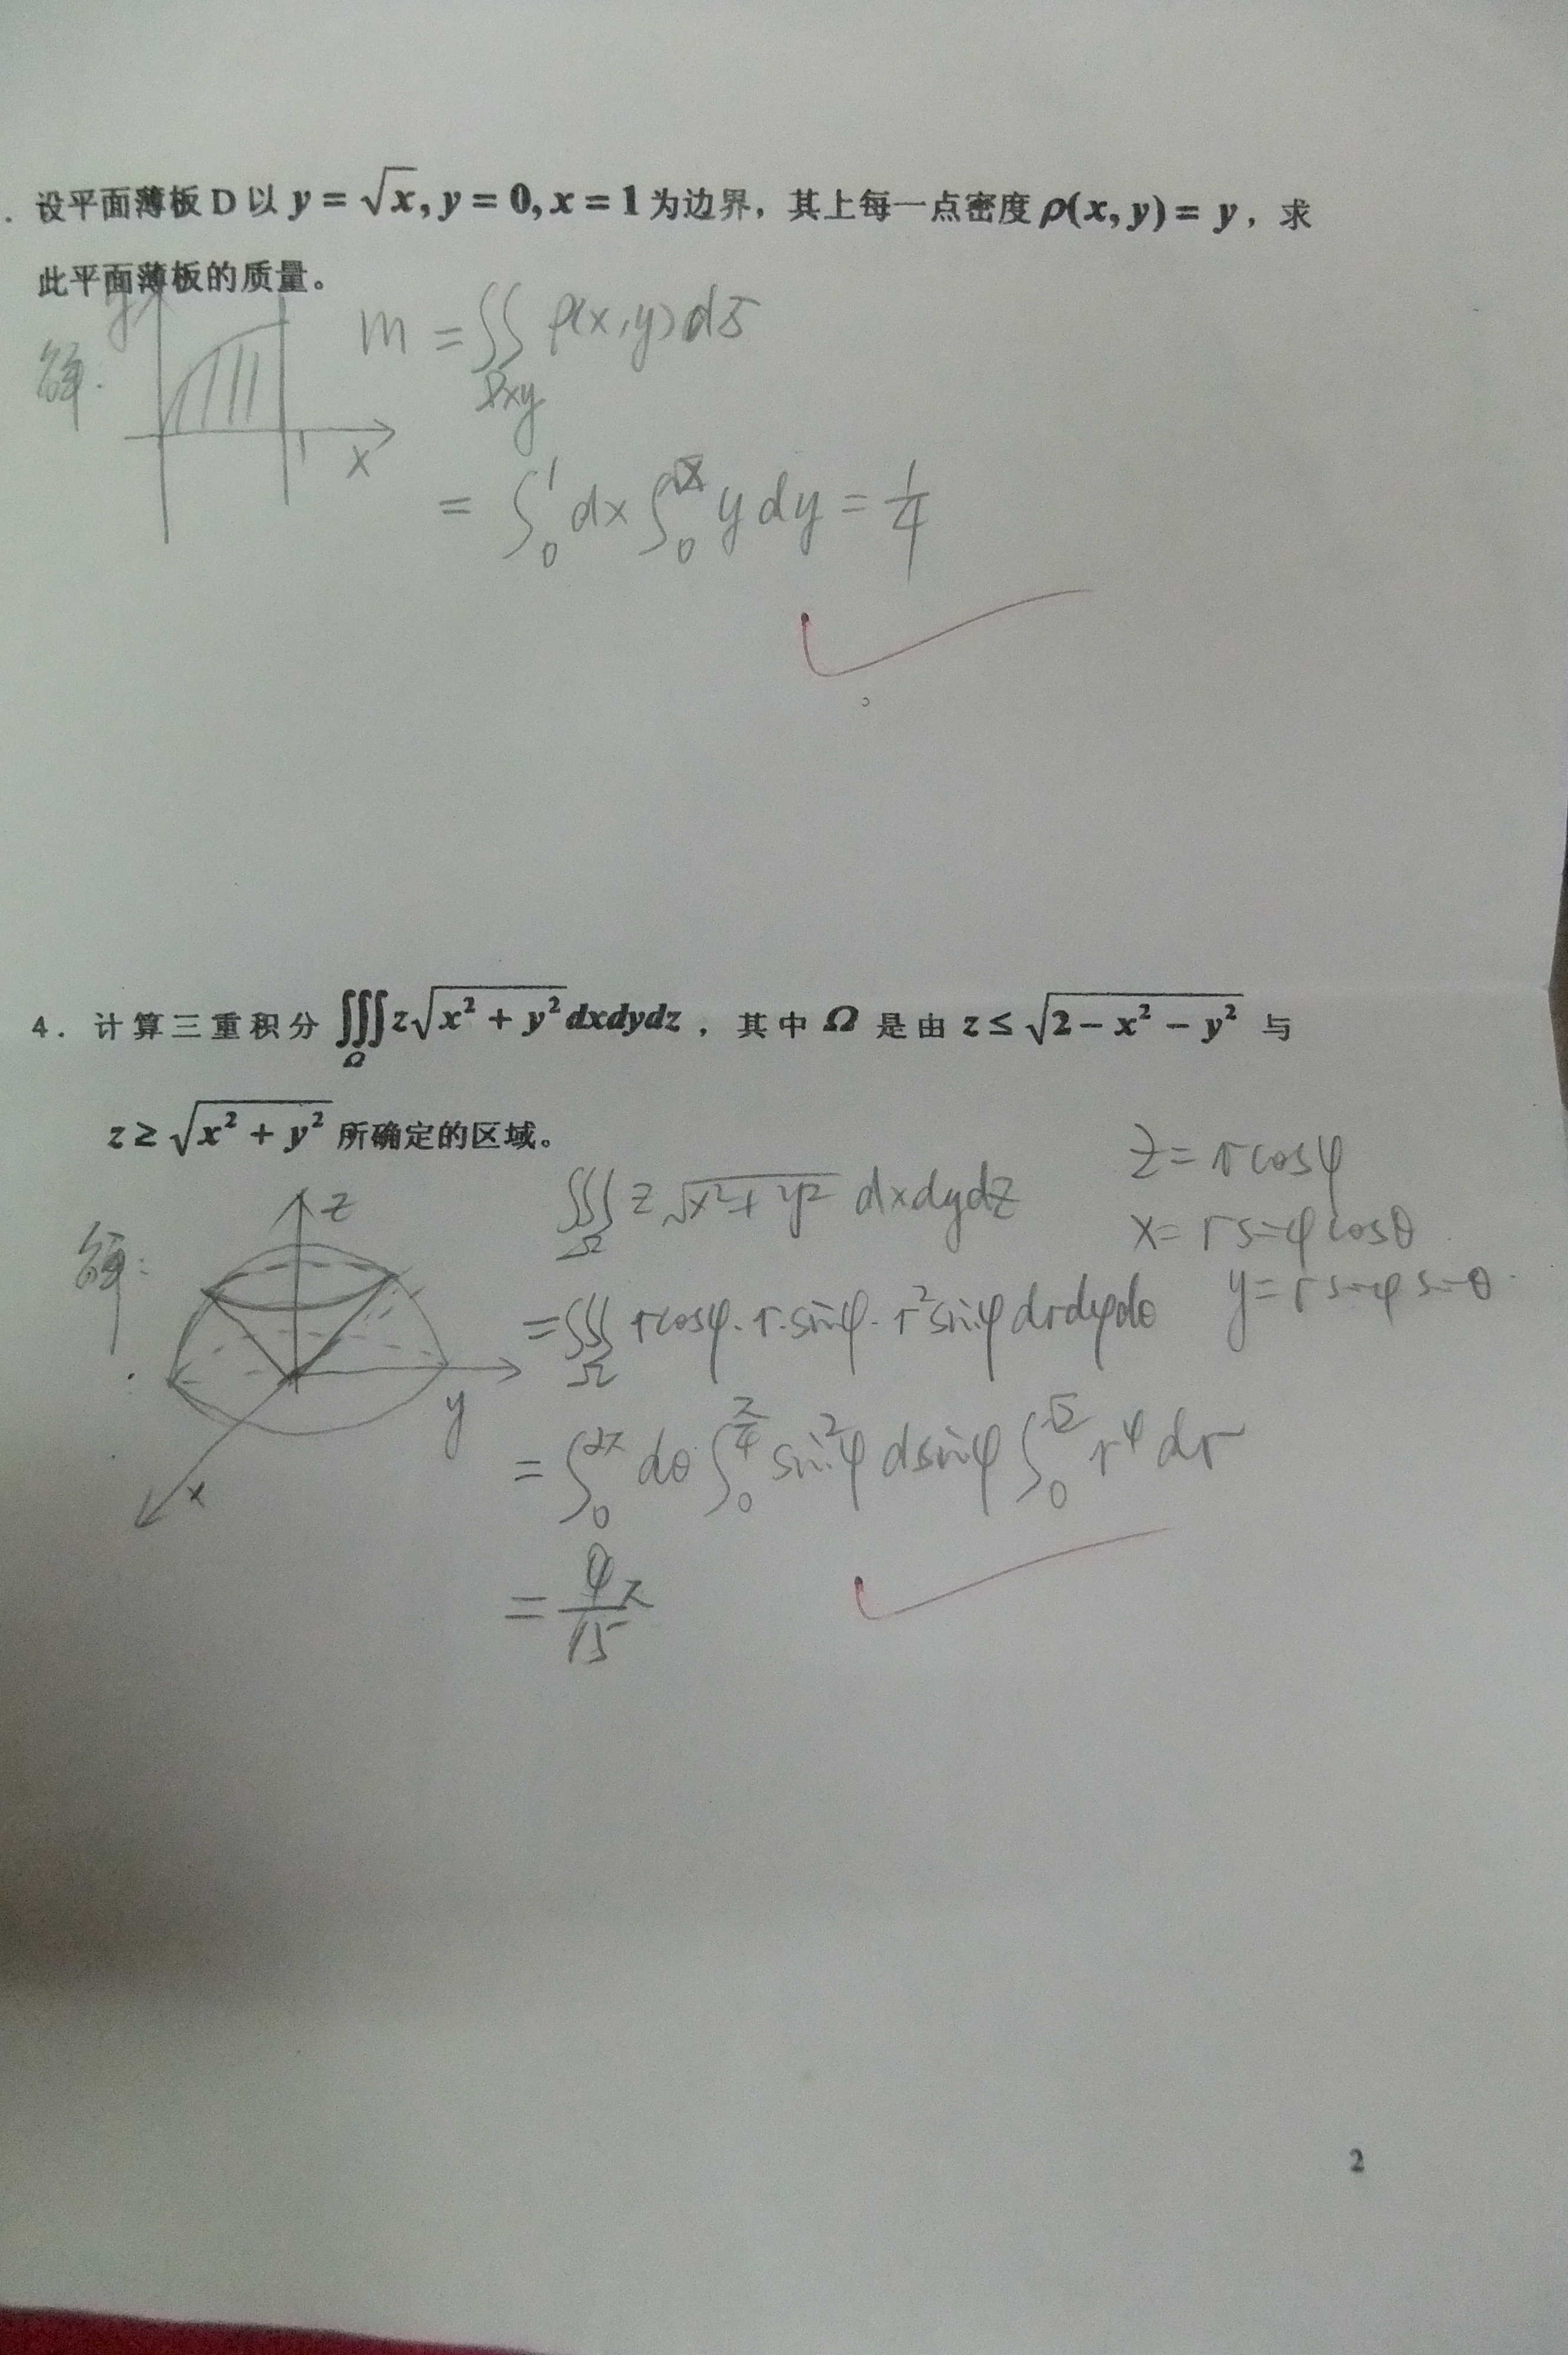 . 设平面薄板 D 以 y = √x, y = 0, x = 1 为边界，其上每一点密度 ρ(x, y) = y，求
此平面薄板的质量。
解.
y
x
1
m = ∬_{Dxy} ρ(x,y)dσ
= ∫₀¹ dx ∫₀^{√x} y dy = 1/4
4. 计算三重积分 ∭_Ω z√(x² + y²) dxdydz，其中 Ω 是由 z ≤ √(2 − x² − y²) 与
z ≥ √(x² + y²) 所确定的区域。
解:
z
y
x
∭_Ω z √(x²+y²) dxdydz
z = r cosφ
x = r sinφ cosθ
y = r sinφ sinθ.
= ∭_Ω r cosφ · r · sinφ · r² sinφ dr dφ dθ
= ∫₀^{2π} dθ ∫₀^{π/4} sin²φ d sinφ ∫₀^{√2} r⁴ dr
= 4/15 π
2